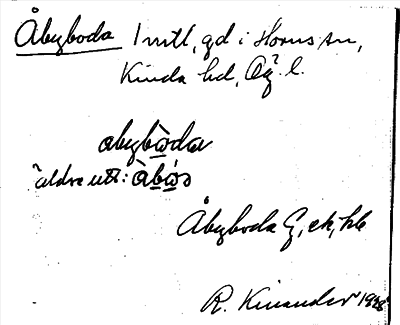 Åbyboda 1 mtl, gd i Horns sn,
Kinda hd, Ög. l.
abybòda
äldre utt:
Åbyboda G, ek, hb
R. Kinander 1928